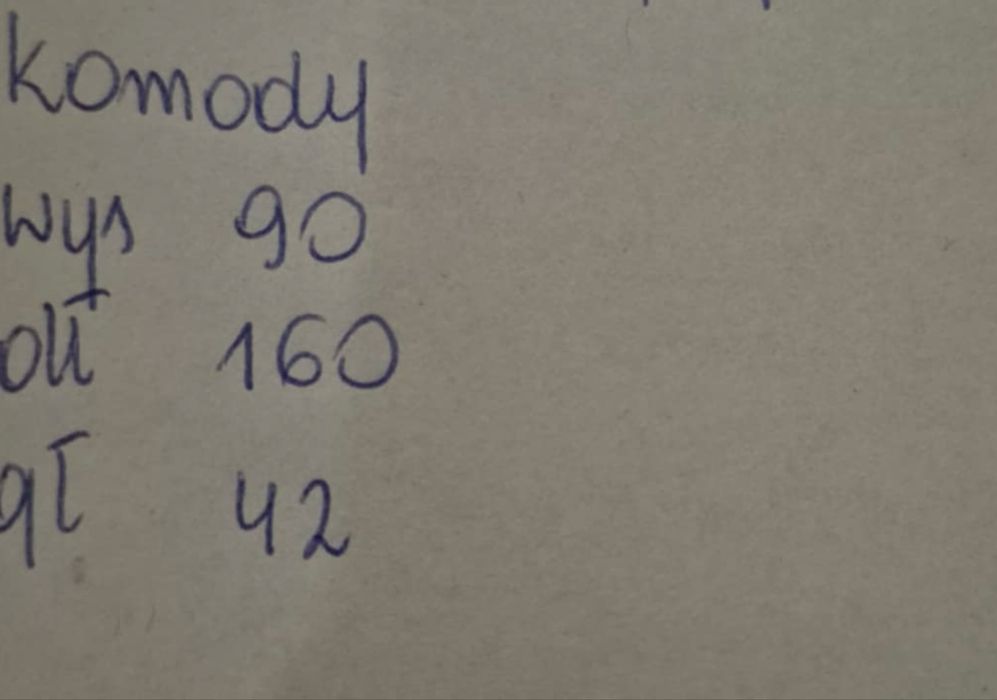 komody
wys 90
dł 160
gł 42